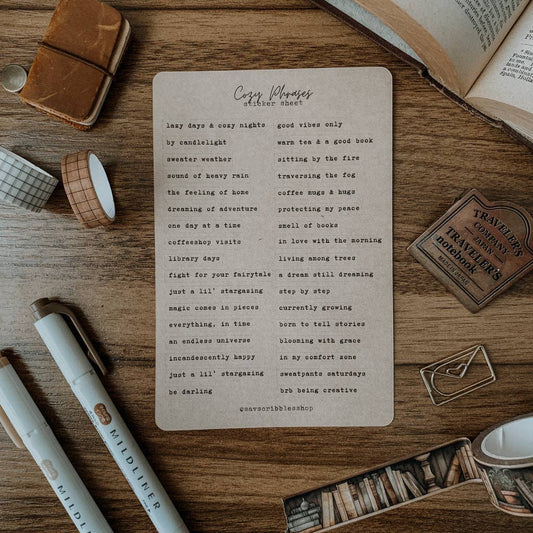 Cozy Phrases
sticker sheet
lazy days & cozy nights
by candlelight
sweater weather
sound of heavy rain
the feeling of home
dreaming of adventure
one day at a time
coffeeshop visits
library days
fight for your fairytale
just a lil' stargazing
magic comes in pieces
everything, in time
an endless universe
incandescently happy
just a lil' stargazing
be darling
good vibes only
warm tea & a good book
sitting by the fire
traversing the fog
coffee mugs & hugs
protecting my peace
smell of books
in love with the morning
living among trees
a dream still dreaming
step by step
currently growing
born to tell stories
blooming with grace
in my comfort zone
sweatpants saturdays
brb being creative
@savscribblesshop
TRAVELER'S
COMPANY
JAPAN
TRAVELER'S
notebook
MILDLINER
MILDLINER